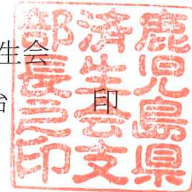 生会
印
鹿児島県
済生会支
部長之印